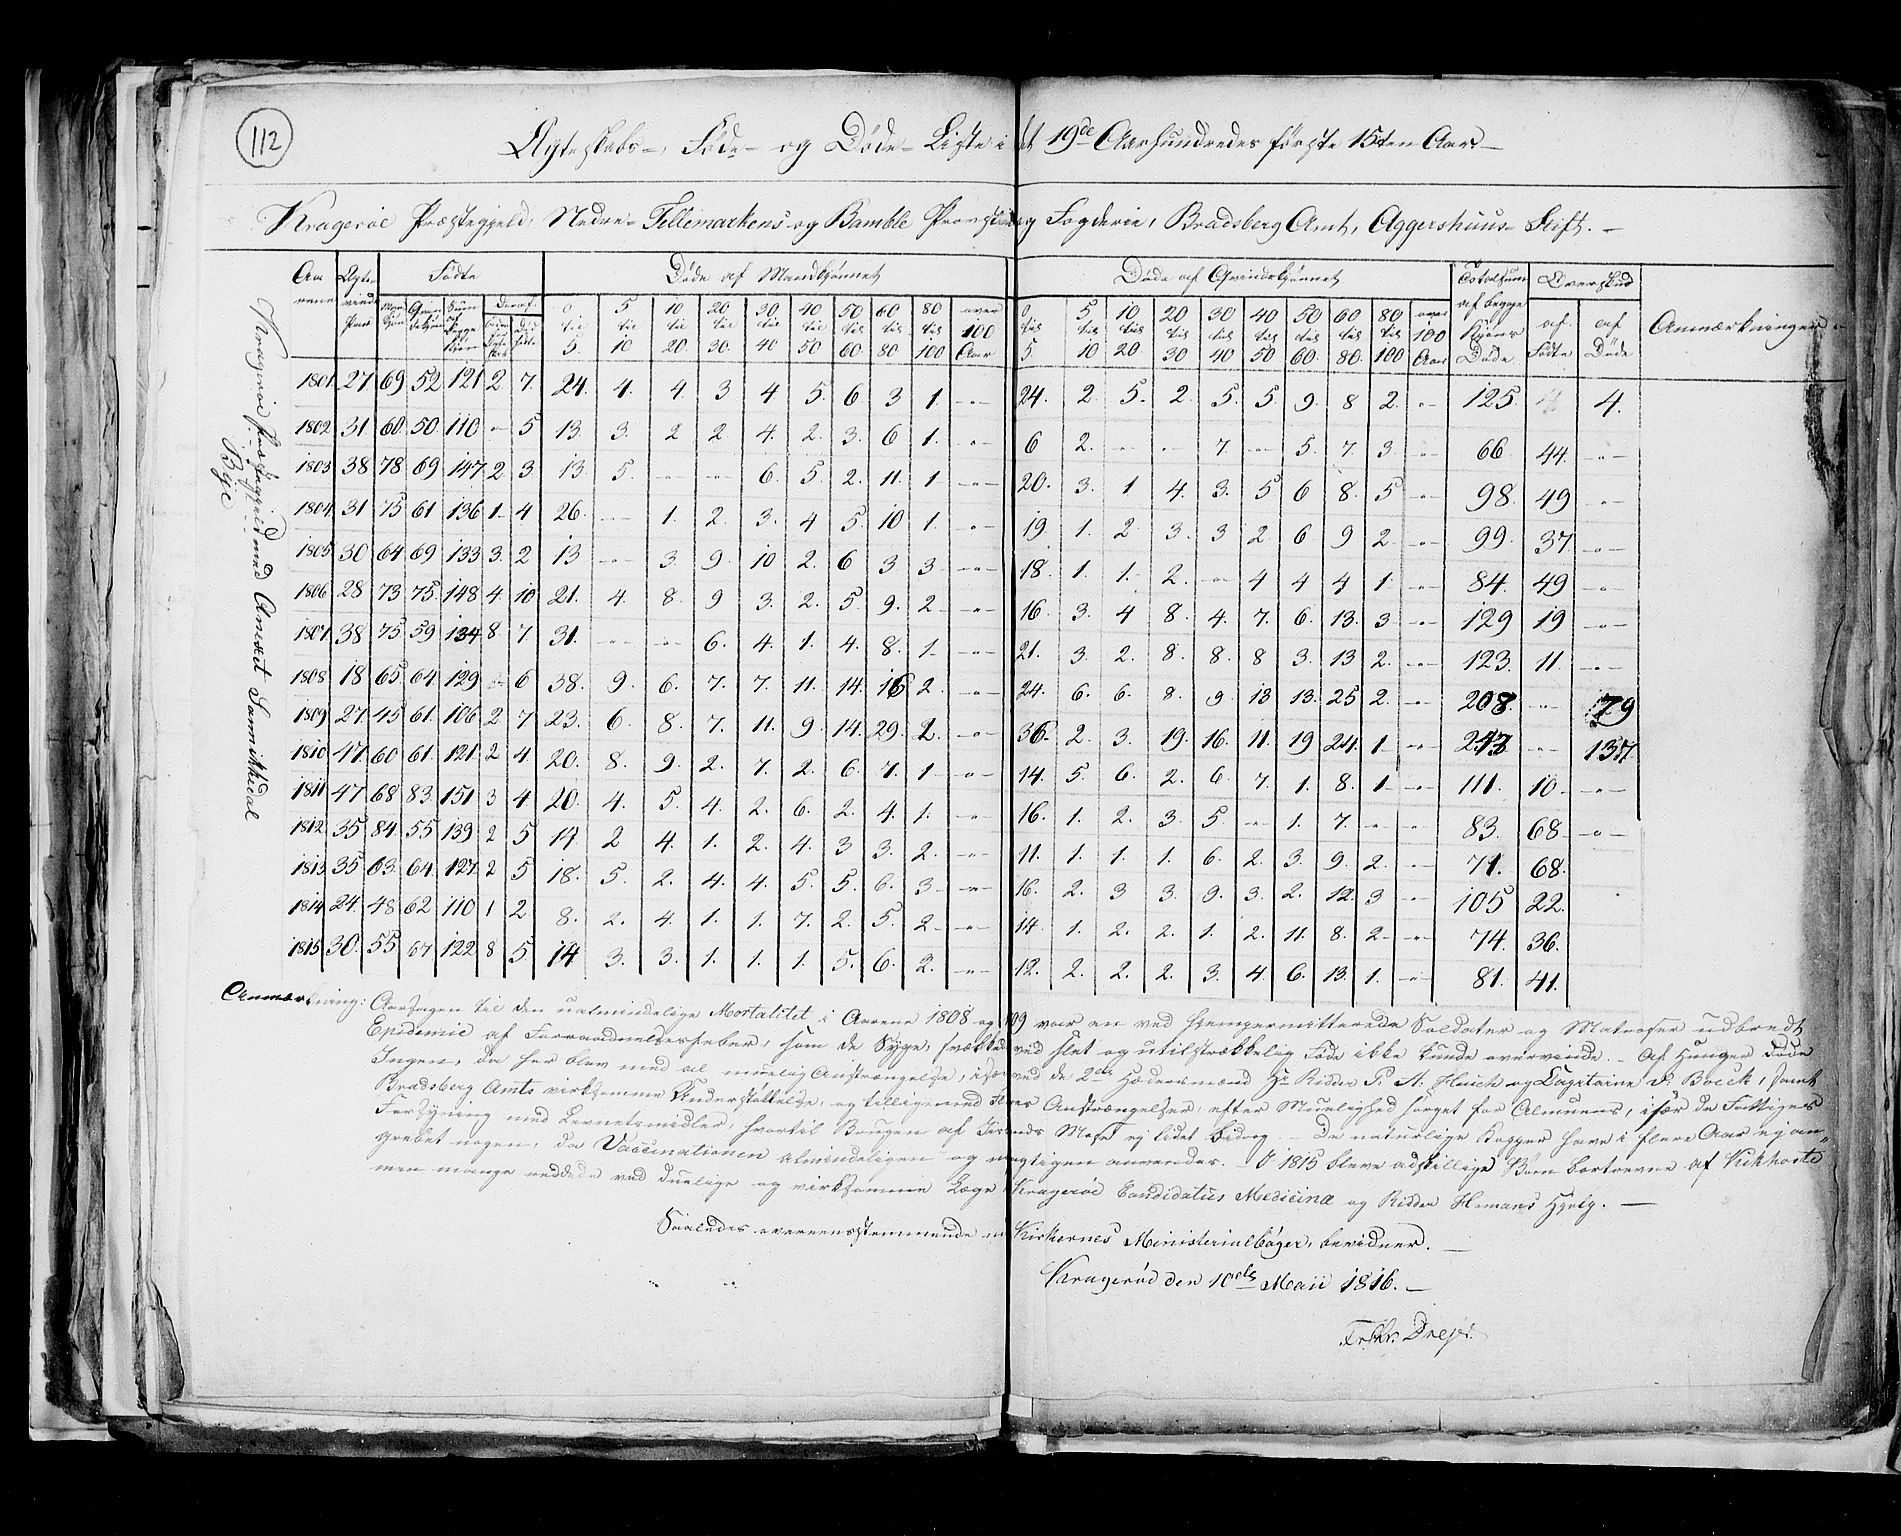 112
Ægteskabs-, Føde- og Døde-Liste i det 19de Aarhundredes første 15ten Aar.
Kragerøe Præstegjeld, Nedre-Tellemarkens og Bamble Provstie og Fogderie, Bradsberg Amt, Aggershuus-Stift.
Kragerøe Præstegjeld med Annext Sannikkedal
Bye
Aarene Ægteviede Par Fødte Døde af Mandkjønnet Døde af Qvindekjønnet Totalsum af begge Kjøns Døde Overskud Anmærkninger
Mandkjøn Qvindekjøn Sum af begge Kjøn Deraf af Fødte af Døde
0 til 5. 5 til 10 10 til 20 20 til 30. 30 til 40 40 til 50 50 til 60. 60 til 80 80 til 100 over 100 Aar 0 til 5. 5 til 10 10 til 20 20 til 30 30 til 40 40 til 50 50 til 60. 60 til 80 80 til 100 over 100 Aar
1801 27 69 52 121 2 7. 24. 4. 4 3 4 5. 6 3 1. -"- 24. 2 5. 2. 5. 5. 9. 8 2. -"- 125. 4.
1802 31 60 50. 110 -"- 5 13. 3. 2 2. 4. 2. 3. 6 1. -"- 6 2. -"- -"- 7. -"- 5. 7. 3. -"- 66 44. -"-
1803 38 78 69 147. 2 3 13 5. -"- -"- 6. 5 2. 11. 1. -"- 20. 3. 1 4. 3. 5 6 8. 5 -"- 98. 49 -"-
1804 31 75 61 136 1 4 26. -"- 1. 2. 3. 4 5. 10 1. -"- 19 1. 2 3. 3 2 6 9 2. -"- 99. 37. -"-
1805 30 64 69 133 3. 2 13 -"- 3. 9. 10 2. 6 3 3. -"- 18. 1. 1. 2. -"- 4 4 4 1. -"- 84. 49 -"-
1806 28 73 75. 148 4. 10 21. 4. 8. 9 3. 2. 5. 9. 2 -"- 16. 3. 4 8. 4. 7. 6. 13. 3 -"- 129 19 -"-
1807 38 75 59 134 8. 7 31. -"- -"- 6. 4. 1. 4. 8. 1. -"- 21. 3. 2. 8. 8. 8 3. 13 2. -"- 123. 11. -"-
1808 18 65 64. 129 -"- 6 38. 9. 6. 7. 7. 11. 14. 16 2. -"- 24. 6. 6. 8. 9. 18 13. 25 2. -"- 208. -"- 79
1809 27 45 61. 106 2 7 23. 6. 8. 7. 11. 9. 14. 29. 2. -"- 36. 2. 3. 19. 16. 11. 19 24. 1. -"- 243 -"- 137
1810 47. 60 61. 121. 2 4 20. 8. 9. 2. 7. 2. 6. 7. 1. -"- 14. 5. 6. 2. 6. 7. 1. 8. 1. -"- 111. 10. -"-
1811 47 68 83. 151 3 4 20. 4. 5. 4. 2. 6. 2. 4. 1. -"- 16. 1. 2. 3. 5. -"- 1. 7. -"- -"- 83. 68. -"-
1812 35 84. 55 139 2 5 17 2 4. 1. 2. 4. 3 3. 2. -"- 11. 1. 1. 1. 6. 2. 3. 9. 2. -"- 71. 68.
1813 35 63. 64. 127. 2 5 18. 5. 2. 4. 4. 5. 5. 6. 3. -"- 16. 2. 3 3. 9. 3. 2. 12. 3 -"- 105 22.
1814 24. 48 62 110 1 2. 8. 2. 4. 1. 1. 7. 2. 5. 2. -"- 14. 1. 2. 2. 1. 2. 11. 8. 2. -"- 74. 36.
1815 30. 55 67 122 8 5 14 3. 3. 1. 1. 1. 5. 6. 2. -"- 12. 2. 2. 2. 3. 4. 6. 13. 1. -"- 81. 41.
Anmærkning: Aarsagen til den ualmindelige Mortalitet i Aarene 1808 og 1809 var en ved hiempermitterede Soldater og Matroser udbredt
Epidemie af Forraadnelsesfeber, som de Syge, svækkede ved slet og utilstrækkelig Føde ikke kunde overvinde. - Af Hunger døde
Ingen, da her blev med al muelig Anstrængelse, især ved de 2de Hædersmænd Hr. Ridder P. A. Heuch og Capitaine v. Boeck, samt
Bradsberg Amts virksomme Understøttelse, og tilligemed Anstrængelser, efter Muelighed sørget for Almuens, især de Fattiges
Forsyning med Levnetsmidler, hvortil Brugen af Islands Mose ej lidet bidrog. - De naturlige Kopper have i flere Aar ej an-
grebet nogen, da Vaccinationen almindeligen og anvendes. - I 1815 bleve adskillige Børn bortrevne af Kikhoste
men mange reddede ved duelige og virksomme Læge i Kragerøe Candidatus Medicinæ og Ridder Homans Hielp. -
Saaledes overeensstemmende med Kirkernes Ministerialbøger, bevidner. -
Kragerøe den 10de Maii 1816. -
Dreyer.